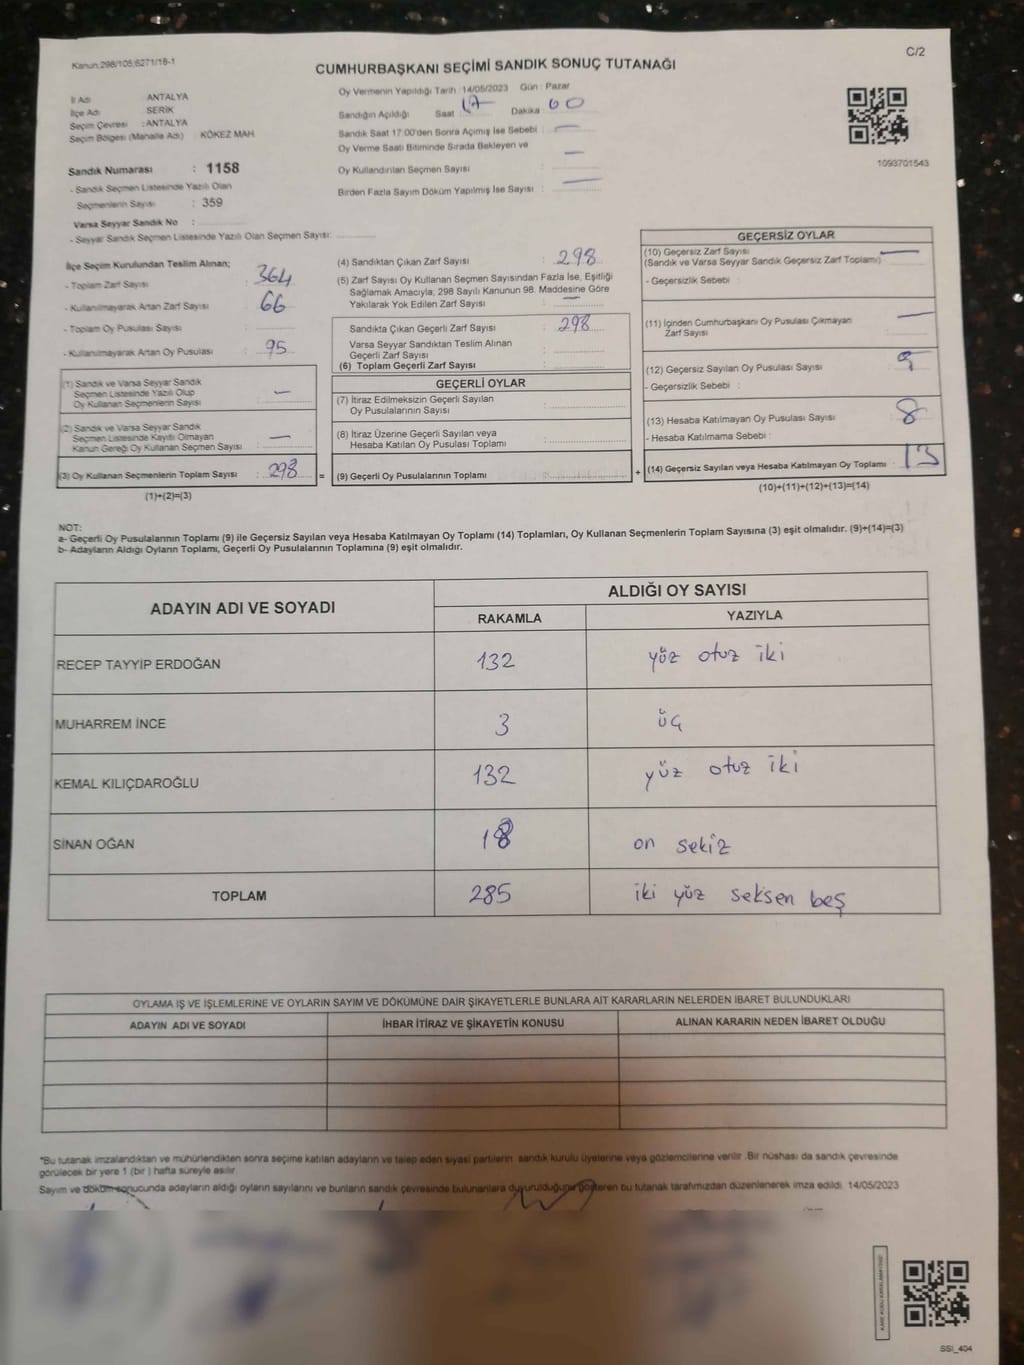 Kanun:298/105,6271/18-1
C/2
CUMHURBAŞKANI SEÇİMİ SANDIK SONUÇ TUTANAĞI
İl Adı ANTALYA
İlçe Adı SERİK
Seçim Çevresi : ANTALYA
Seçim Bölgesi (Mahalle Adı) KÖKEZ MAH
Sandık Numarası : 1158
- Sandık Seçmen Listesinde Yazılı Olan
Seçmenlerin Sayısı : 359
Varsa Seyyar Sandık No :
- Seyyar Sandık Seçmen Listesinde Yazılı Olan Seçmen Sayısı:
Oy Vermenin Yapıldığı Tarih : 14/05/2023 Gün : Pazar
Sandığın Açıldığı Saat 17 Dakika 00
Sandık Saat 17:00'den Sonra Açımış İse Sebebi : —
Oy Verme Saati Bitiminde Sırada Bekleyen ve
Oy Kullandırılan Seçmen Sayısı —
Birden Fazla Sayım Döküm Yapılmış İse Sayısı : —
1093701543
İlçe Seçim Kurulundan Teslim Alınan;
- Toplam Zarf Sayısı : 364
- Kullanılmayarak Artan Zarf Sayısı : 66
- Toplam Oy Pusulası Sayısı :
- Kullanılmayarak Artan Oy Pusulası : 95
(1) Sandık ve Varsa Seyyar Sandık
Seçmen Listesinde Yazılı Olup
Oy Kullanan Seçmenlerin Sayısı : —
(2) Sandık ve Varsa Seyyar Sandık
Seçmen Listesinde Kayıtlı Olmayan
Kanun Gereği Oy Kullanan Seçmen Sayısı : —
(3) Oy Kullanan Seçmenlerin Toplam Sayısı : 298 =
(1)+(2)=(3)
(4) Sandıktan Çıkan Zarf Sayısı : 298
(5) Zarf Sayısı Oy Kullanan Seçmen Sayısından Fazla İse, Eşitliği
Sağlamak Amacıyla; 298 Sayılı Kanunun 98. Maddesine Göre
Yakılarak Yok Edilen Zarf Sayısı : —
Sandıkta Çıkan Geçerli Zarf Sayısı : 298
Varsa Seyyar Sandıktan Teslim Alınan
Geçerli Zarf Sayısı :
(6) Toplam Geçerli Zarf Sayısı :
GEÇERLİ OYLAR
(7) İtiraz Edilmeksizin Geçerli Sayılan
Oy Pusulalarının Sayısı :
(8) İtiraz Üzerine Geçerli Sayılan veya
Hesaba Katılan Oy Pusulası Toplamı :
(9) Geçerli Oy Pusulalarının Toplamı : +
GEÇERSİZ OYLAR
(10) Geçersiz Zarf Sayısı —
(Sandık ve Varsa Seyyar Sandık Geçersiz Zarf Toplamı)
- Geçersizlik Sebebi :
(11) İçinden Cumhurbaşkanı Oy Pusulası Çıkmayan —
Zarf Sayısı
(12) Geçersiz Sayılan Oy Pusulası Sayısı
- Geçersizlik Sebebi :
(13) Hesaba Katılmayan Oy Pusulası Sayısı 8
- Hesaba Katılmama Sebebi :
(14) Geçersiz Sayılan veya Hesaba Katılmayan Oy Toplamı : 13
(10)+(11)+(12)+(13)=(14)
NOT:
a- Geçerli Oy Pusulalarının Toplamı (9) ile Geçersiz Sayılan veya Hesaba Katılmayan Oy Toplamı (14) Toplamları, Oy Kullanan Seçmenlerin Toplam Sayısına (3) eşit olmalıdır. (9)+(14)=(3)
b- Adayların Aldığı Oyların Toplamı, Geçerli Oy Pusulalarının Toplamına (9) eşit olmalıdır.
ADAYIN ADI VE SOYADI ALDIĞI OY SAYISI
RAKAMLA YAZIYLA
RECEP TAYYİP ERDOĞAN 132 yüz otuz iki
MUHARREM İNCE 3 üç
KEMAL KILIÇDAROĞLU 132 yüz otuz iki
SİNAN OĞAN 18 on sekiz
TOPLAM 285 iki yüz seksen beş
OYLAMA İŞ VE İŞLEMLERİNE VE OYLARIN SAYIM VE DÖKÜMÜNE DAİR ŞİKAYETLERLE BUNLARA AİT KARARLARIN NELERDEN İBARET BULUNDUKLARI
ADAYIN ADI VE SOYADI İHBAR İTİRAZ VE ŞİKAYETİN KONUSU ALINAN KARARIN NEDEN İBARET OLDUĞU
*Bu tutanak imzalandıktan ve mühürlendikten sonra seçime katılan adayların ve talep eden siyasi partilerin sandık kurulu üyelerine veya gözlemcilerine verilir .Bir nüshası da sandık çevresinde
görülecek bir yere 1 (bir ) hafta süreyle asılır
Sayım ve döküm sonucunda adayların aldığı oyların sayılarını ve bunların sandık çevresinde bulunanlara duyurulduğunu gösteren bu tutanak tarafımızdan düzenlenerek imza edildi. 14/05/2023
SSI_404